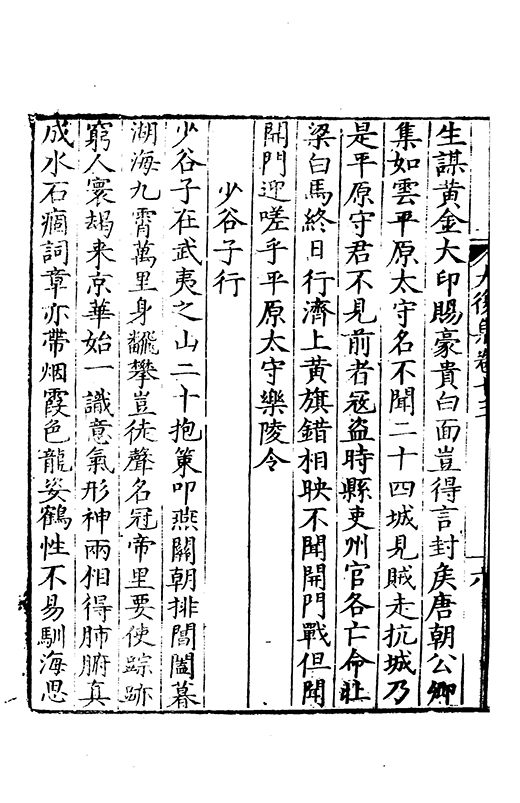 大復集卷十三
六
生謀黃金大印賜豪貴白面豈得言封矦唐朝公卿
集如雲平原太守名不聞二十四城見賊走抗城乃
是平原守君不見前者寇盜時縣吏州官各亡命壯
梁白馬終日行濟上黃旗錯相映不聞開門戰但聞
開門迎嗟乎平原太守樂陵令
少谷子行
少谷子在武夷之山二十抱策叩燕關朝排閶闔暮
湖海九霄萬里身翻攀豈徒聲名冠帝里要使踪跡
窮人寰朅来京華始一識意氣形神兩相得肺腑真
成水石痼詞章亦帶烟霞色龍姿鶴性不易馴海思